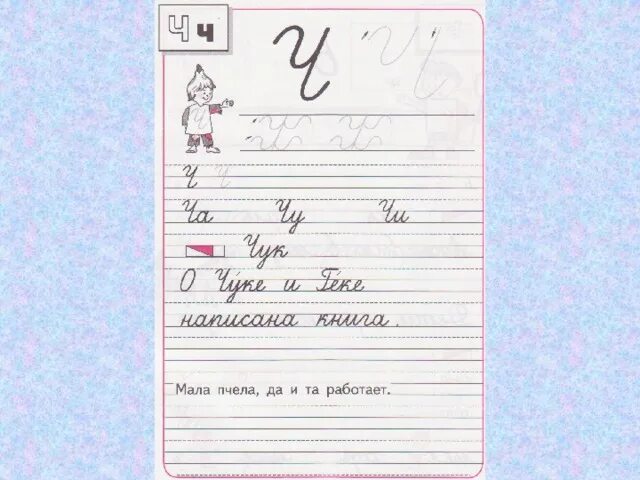 Ч ч
Ч Ч
Ч Ч
Ча Чу Чи
Чук
О Чу́ке и Ге́ке
написана книга.
Мала пчела, да и та работает.